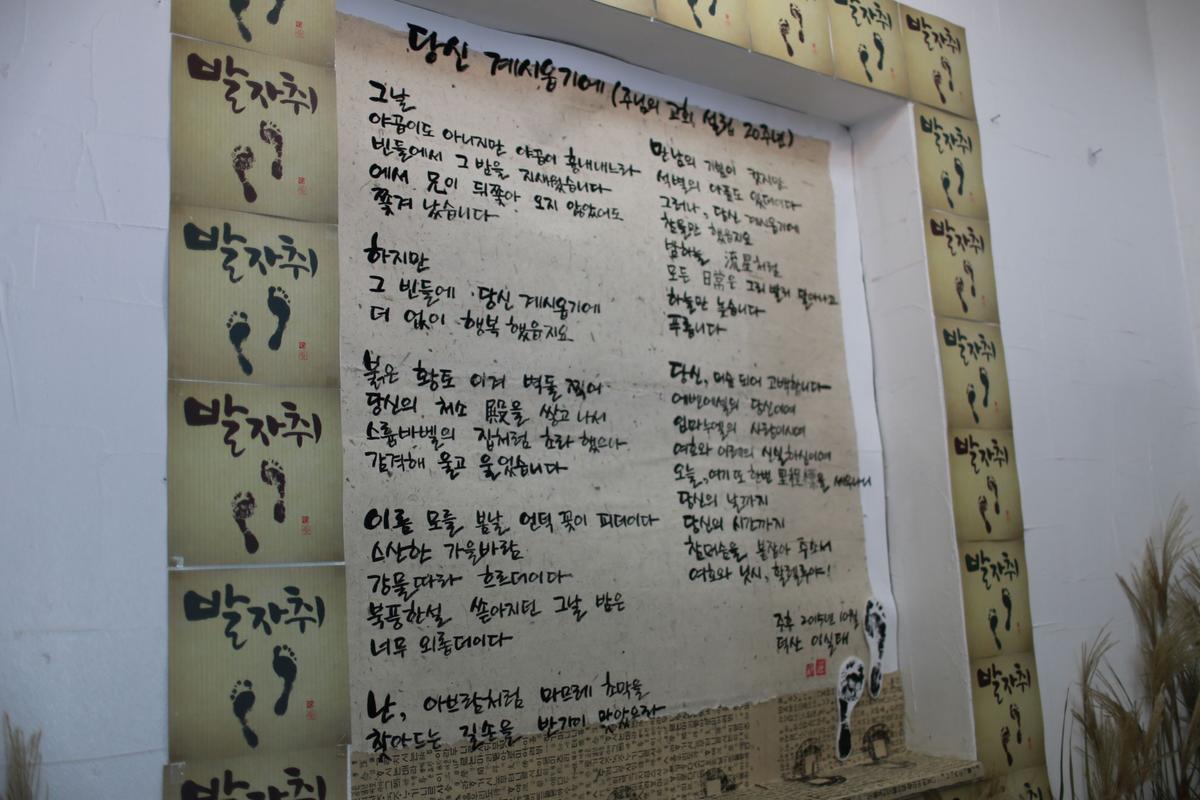 당신 계시옵기에 (주님의 교회 설립 20주년)
그날
야곱이도 아니지만 야곱이 흉내내느라
빈들에서 그 밤을 지새웠습니다
에서 兄이 뒤쫓아 오지 않았어도
쫓겨 났습니다
하지만
그 빈들에 당신 계시옵기에
더 없이 행복했음지요
붉은 황토 이겨 벽돌 찍어
당신의 처소 殿을 쌓고 나서
스룹바벨의 집처럼 초라 했으나
감격해 울고 울었습니다
이름 모를 봄날 언덕 꽃이 피더이다
스산한 가을바람
강물따라 흐르더이다
북풍한설 쏟아지던 그날 밤은
너무 외롭더이다
난, 아브람처럼 마므레 초막을
찾아드는 길손을 반가이 맞았으랴
만남의 기쁨이 컸지만
석별의 아픔도 있더이다
그러나, 당신 계시옵기에
찬송만 했음지요
밤하늘 流星처럼
모든 日常은 그리 빨리 달아나고
하늘만 높습니다
푸릅니다
당신, 머슴 되어 고백합니다
에벤에셀의 당신이여
임마누엘의 사랑이시여
여호와 이레의 신실하심이여
오늘, 여기 또 한번 里程標를 세우나니
당신의 날까지
당신의 시간까지
참머슴을 붙잡아 주소서
여호와 닛시, 할렐루야!
주후 2015년 10월
덕산 이실태
발자취
발자취
발자취
발자취
발자취
발자취
발자취
발자취
발자취
발자취
발자취
발자취